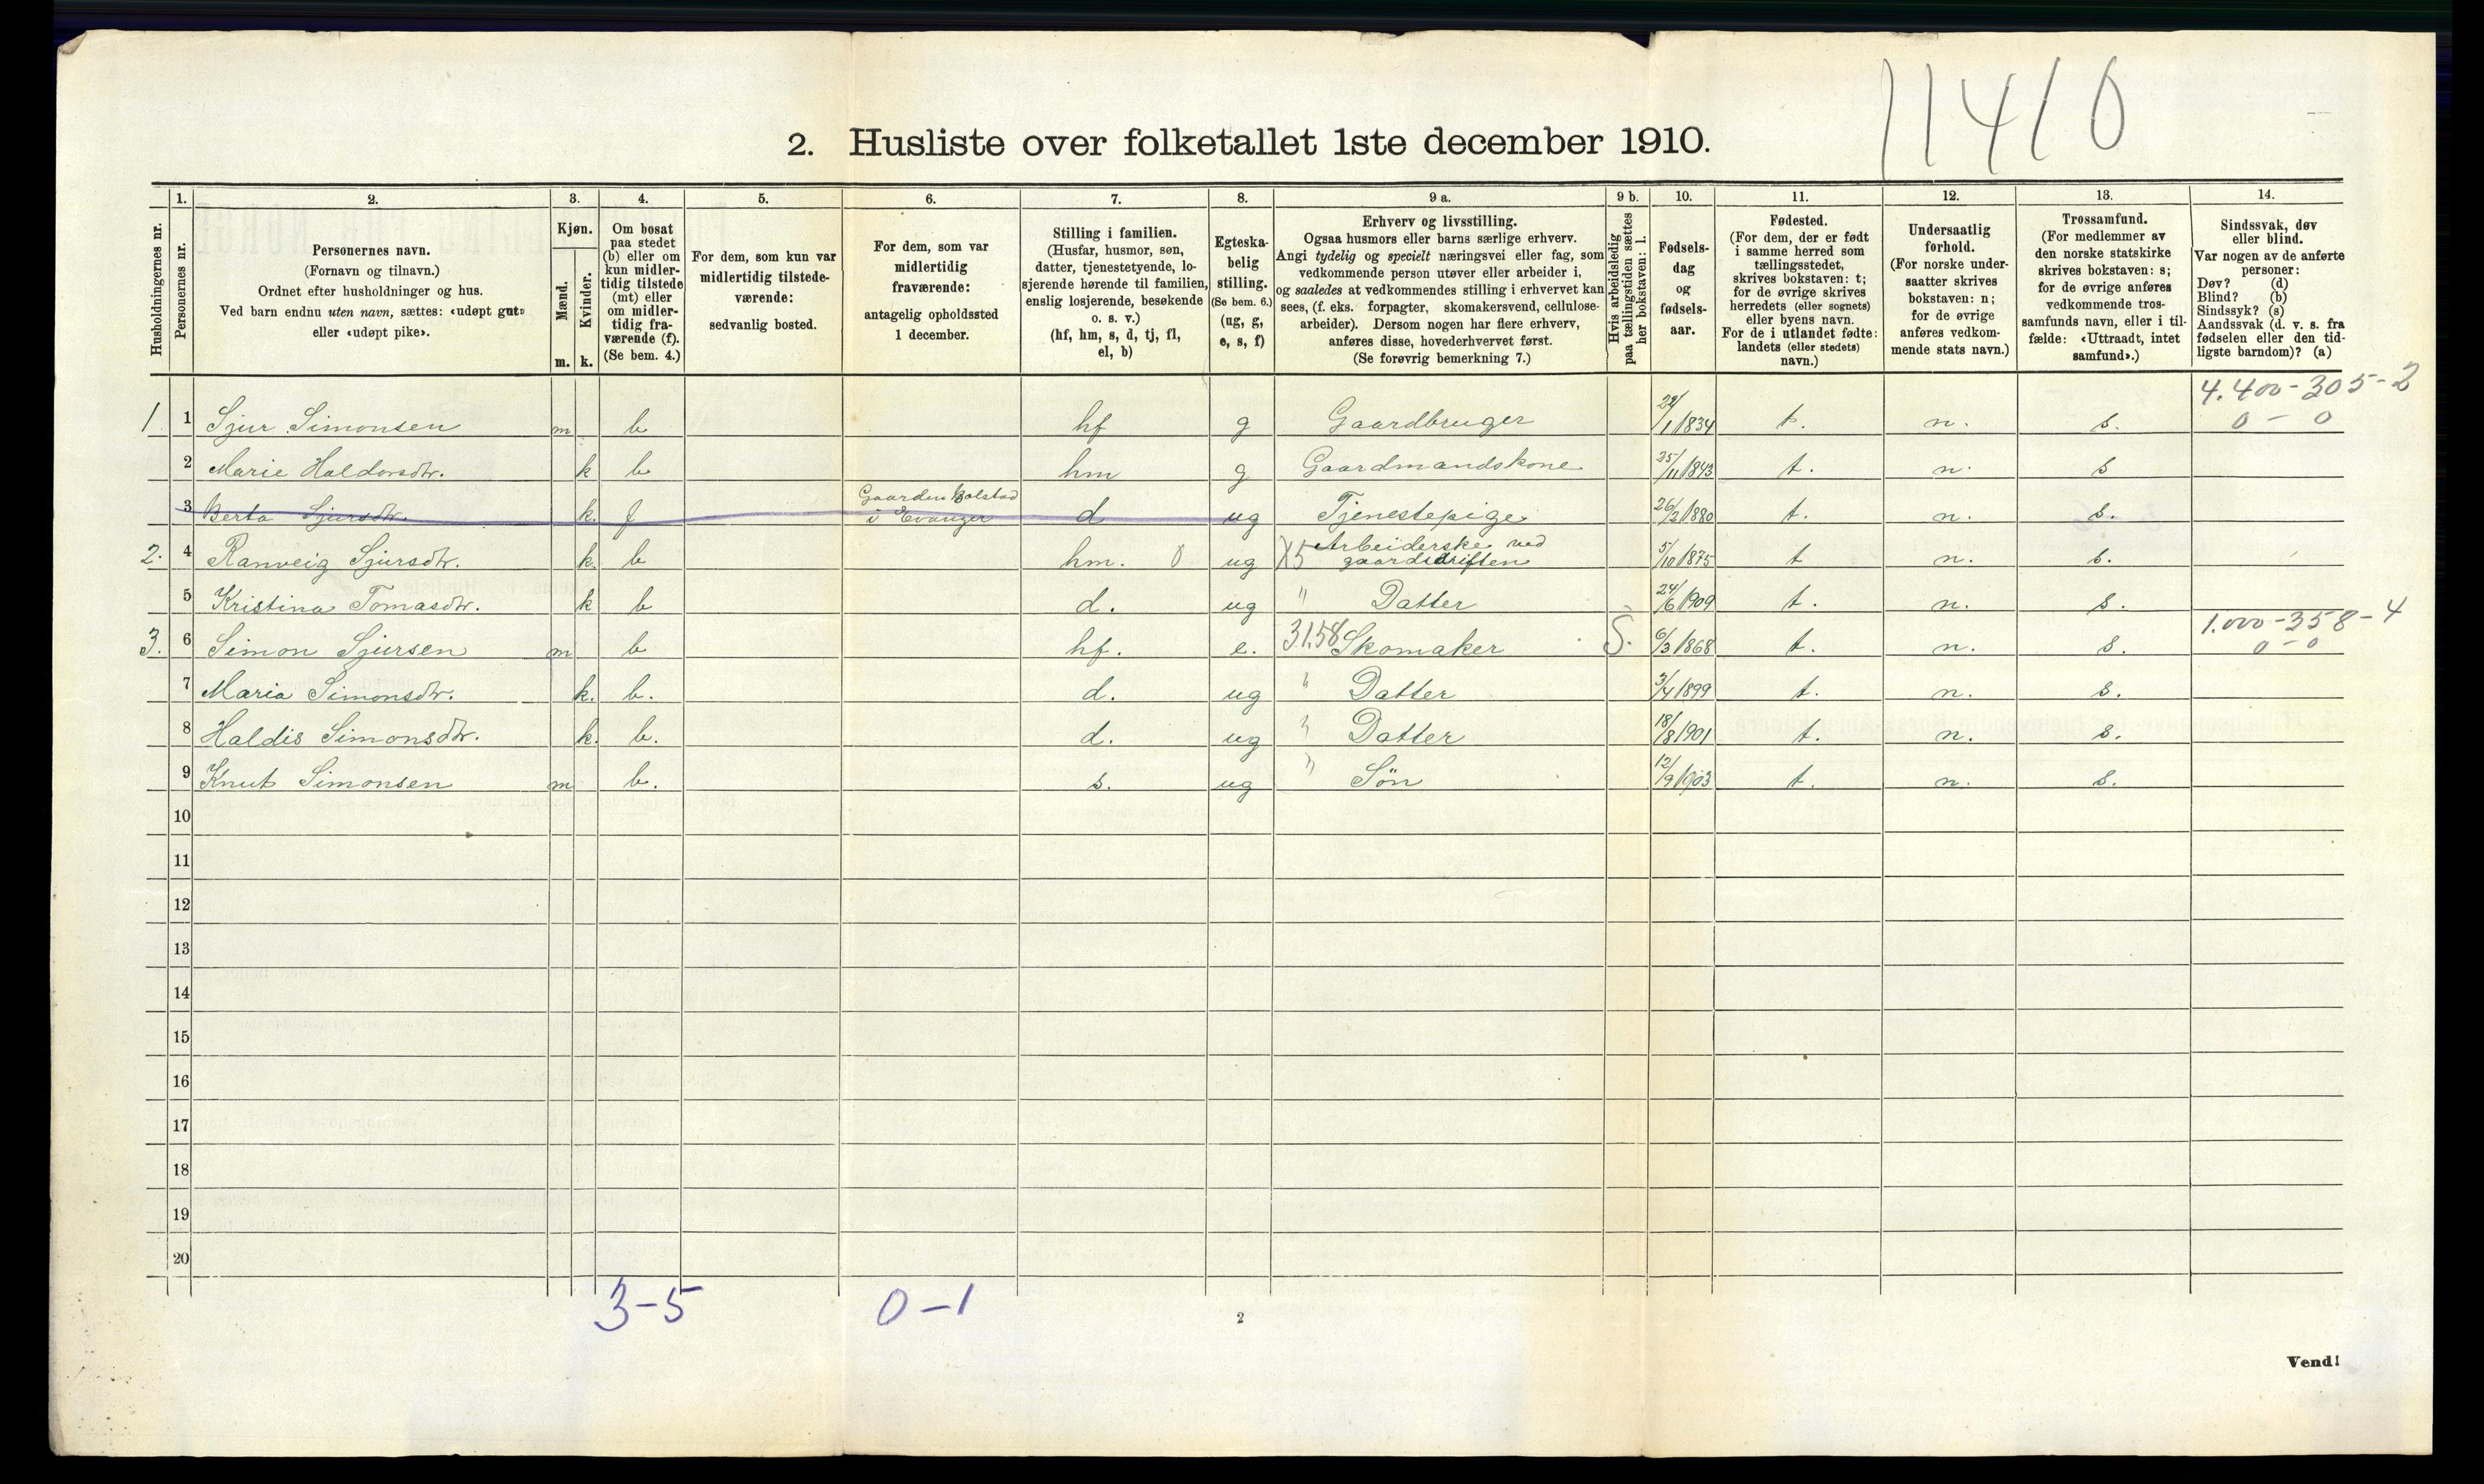 11410
2. Husliste over folketallet 1ste december 1910.
Husholdningernes nr.
1.
Personernes nr.
2.
Personernes navn.
(Fornavn og tilnavn.)
Ordnet efter husholdninger og hus.
Ved barn endnu uten navn, sættes: «udøpt gut»
eller «udøpt pike».
3.
Kjøn.
Mænd.
Kvinder.
m. k.
4.
Om bosat
paa stedet
(b) eller om
kun midler-
tidig tilstede
(mt) eller
om midler-
tidig fra-
værende (f).
(Se bem. 4.)
5.
For dem, som kun var
midlertidig tilstede-
værende:
sedvanlig bosted.
6.
For dem, som var
midlertidig
fraværende:
antagelig opholdssted
1 december.
7.
Stilling i familien.
(Husfar, husmor, søn,
datter, tjenestetyende, lo-
sjerende hørende til familien,
enslig losjerende, besøkende
o. s. v.)
(hf, hm, s, d, tj, fl,
el, b)
8.
Egteska-
belig
stilling.
(Se bem. 6.)
(ug, g,
e, s, f)
9 a.
Erhverv og livsstilling.
Ogsaa husmors eller barns særlige erhverv.
Angi tydelig og specielt næringsvei eller fag, som
vedkommende person utøver eller arbeider i,
og saaledes at vedkommendes stilling i erhvervet kan
sees, (f. eks. forpagter, skomakersvend, cellulose-
arbeider). Dersom nogen har flere erhverv,
anføres disse, hovederhvervet først.
(Se forøvrig bemerkning 7.)
9 b.
Hvis arbeidsledig
paa tællingstiden sættes
her bokstaven: l.
10.
Fødsels-
dag
og
fødsels-
aar.
11.
Fødested.
(For dem, der er født
i samme herred som
tællingsstedet,
skrives bokstaven: t;
for de øvrige skrives
herredets (eller sognets)
eller byens navn.
For de i utlandet fødte:
landets (eller stedets)
navn.)
12.
Undersaatlig
forhold.
(For norske under-
saatter skrives
bokstaven: n;
for de øvrige
anføres vedkom-
mende stats navn.)
13.
Trossamfund.
(For medlemmer av
den norske statskirke
skrives bokstaven: s;
for de øvrige anføres
vedkommende tros-
samfunds navn, eller i til-
fælde: «Uttraadt, intet
samfund».)
14.
Sindssvak, døv
eller blind.
Var nogen av de anførte
personer:
Døv? (d)
Blind? (b)
Sindssyk? (s)
Aandssvak (d. v. s. fra
fødselen eller den tid-
ligste barndom)? (a)
4.400-305-2
1. 1 Sjur Simonsen m b hf g Gaardbruger /1 1834 t. n. s. 0 - 0
2 Marie Haldorsdtr. k b hm g Gaardmandskone 25/11 1843 t. n. s
3 Berta Sjursdtr. k. f Gaarden i Evanger d ug Tjenestepige 26/2 1880 t. n. s.
2. 4 Ranveig Sjursdtr. k. b hm. 0 ug X5 Arbeiderske ved gaardsdriften 5/10 1875 t n. s.
5 Kristina Tomasdtr. k b d. ug " Datter 24/6 1909 t. n. s.
1.000-358-4
3. 6 Simon Sjursen m b hf. e. 31.58 Skomaker S. 6/3 1868 t. n. s. 0-0
7 Maria Simonsdtr. k. b. d. ug " Datter 3/4 1899 t. n. s.
8 Haldis Simonsdtr. k. b. d. ug " Datter 18/8 1901 t. n. s.
9 Knut Simonsen m b. s. ug " Søn 12/9 1903 t. n. s.
10
11
12
13
14
15
16
17
18
19
20
3-5 0-1
2
Vend!